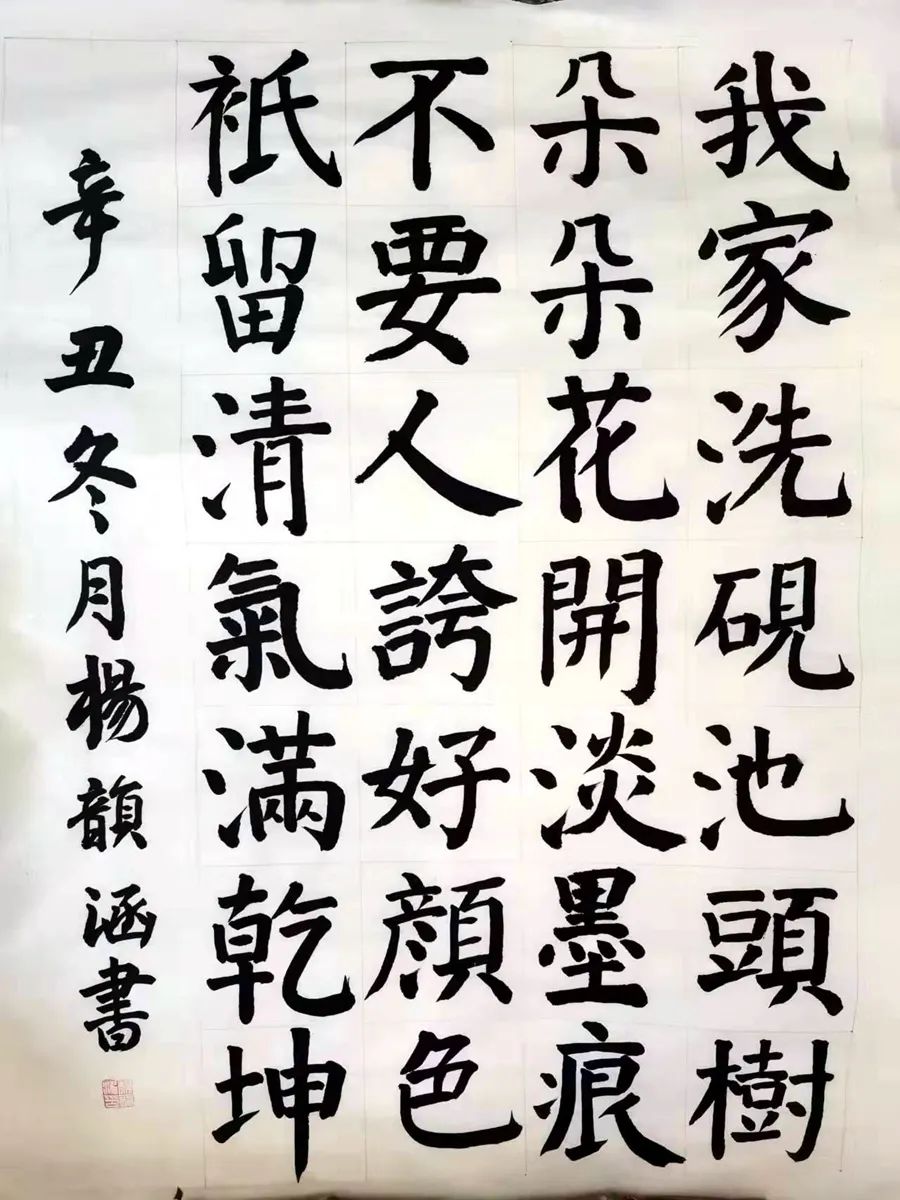 我家洗硯池頭樹
朵朵花開淡墨痕
不要人誇好顏色
祇留清氣滿乾坤
辛丑冬月楊韻涵書